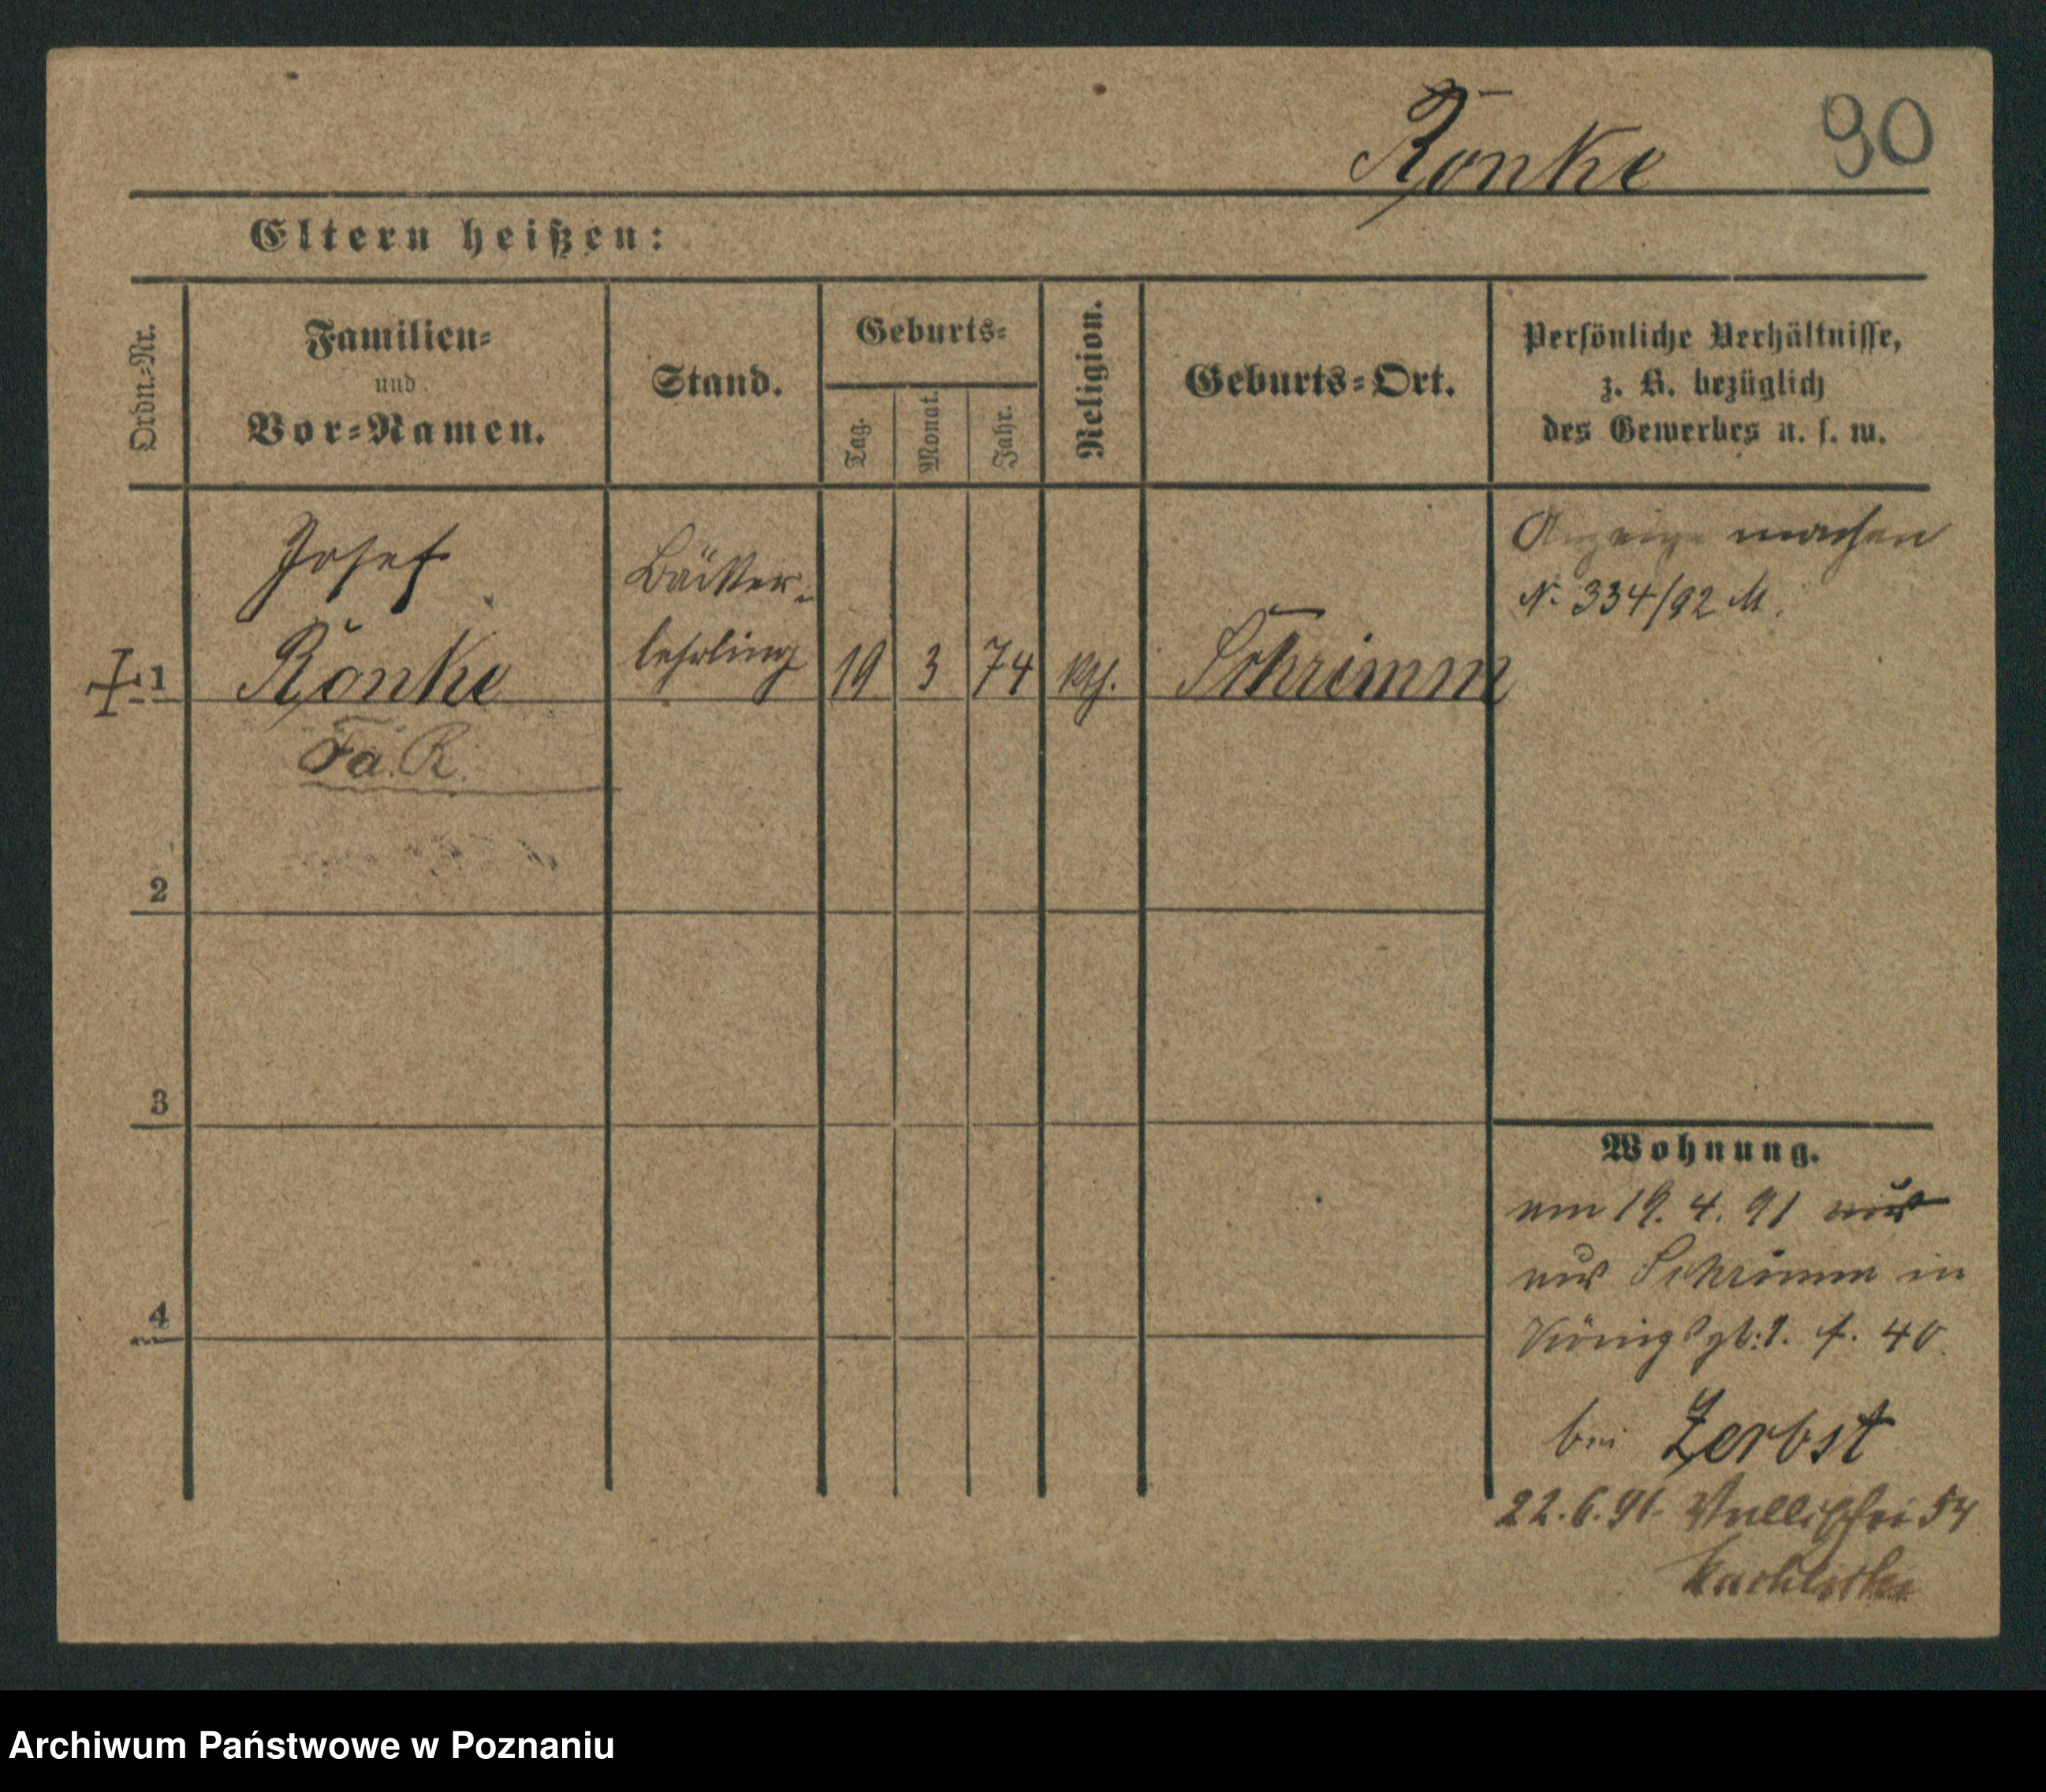 Ronke
90
Eltern heißen:
Ordn.-Nr.
Familien-
und
Vor-Namen.
Stand.
Geburts-
Tag.
Monat.
Jahr.
Religion.
Geburts-Ort.
Persönliche Verhältnisse,
z. B. bezüglich
des Gewerbes u. s. w.
Josef
Ronke
Bäcker-
lehrling
1
19
3
74
kth.
Schrimm
Anzeige machen
N. 334/92 M.
Fa. R.
2
3
4
Wohnung.
am 19. 4. 91
aus Schrimm in
40.
bei Zerbst
22.6.91. Wallischei 54
Archiwum Państwowe w Poznaniu